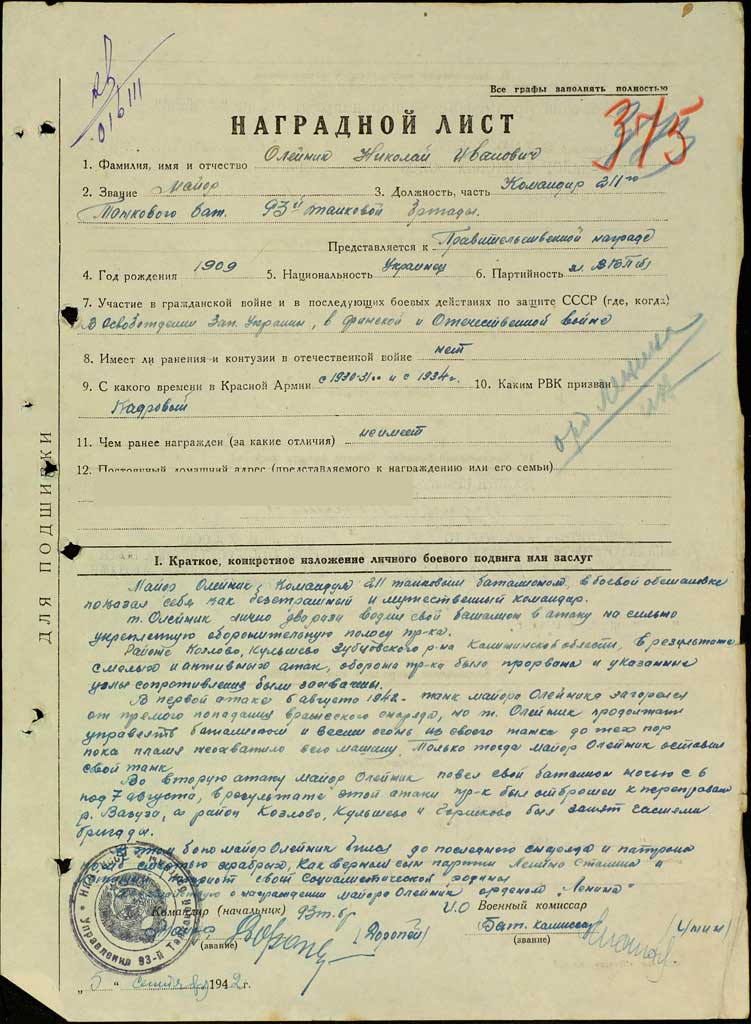 Все графы заполнять полностью
375
НАГРАДНОЙ ЛИСТ
1. Фамилия, имя и отчество Олейник Николай Иванович
2. Звание майор 3. Должность, часть Командир 211го
Танкового бат. 93й танковой бригады.
Представляется к Правительственной награде
4. Год рождения 1909 5. Национальность Украинец 6. Партийность чл. ВКП(б)
7. Участие в гражданской войне и в последующих боевых действиях по защите СССР (где, когда)
В Освобождении Зап. Украины, в финской и Отечественной войне
8. Имеет ли ранения и контузии в отечественной войне нет
9. С какого времени в Красной Армии с 1930-31 и с 1934г. 10. Каким РВК призван
Кадровый
орд Ленина
11. Чем ранее награжден (за какие отличия) не имеет
12. Постоянный домашний адрес (представляемого к награждению или его семьи)
ДЛЯ ПОДШИВКИ
I. Краткое, конкретное изложение личного боевого подвига или заслуг
Майор Олейник, Командуя 211 танковым баталионом, в боевой обстановке
показал себя как безстрашный и мужественный командир.
т. Олейник лично два раза водил свой баталион в атаку на сильно
укрепленную оборонительную полосу пр-ка.
Районе Козлово, Кульшево Зубцовского р-на Калининской области, в результате
смелых и активных атак, оборона пр-ка была прорвана и указанные
узлы сопротивления были захвачены.
В первой атаке 6 августа 1942 танк майора Олейника загорелся
от прямого попадания вражеского снаряда, но т. Олейник продолжал
управлять баталионом и вести огонь из своего танка до тех пор
пока пламя не охватило всю машину. Только тогда майор Олейник оставил
свой танк
Во вторую атаку майор Олейник повел свой баталион ночью с 6
под 7 августа, в результате этой атаки пр-к был отброшен к переправам
р. Вазуза, а район Козлово, Кульшево и Горшково был занят частями
бригады.
В этом бою майор Олейник бился до последнего снаряда и патрона
смертью храбрых, как верный сын партии Ленина Сталина и
патриот своей Социалистической родины
о награждении майора Олейник орденом "Ленина"
Командир (начальник) 93 т. бр И.О Военный комиссар
майор (Доропей) Бат. комиссар
(звание) (звание)
Управления 93-й
„5" сентября 1942 г.